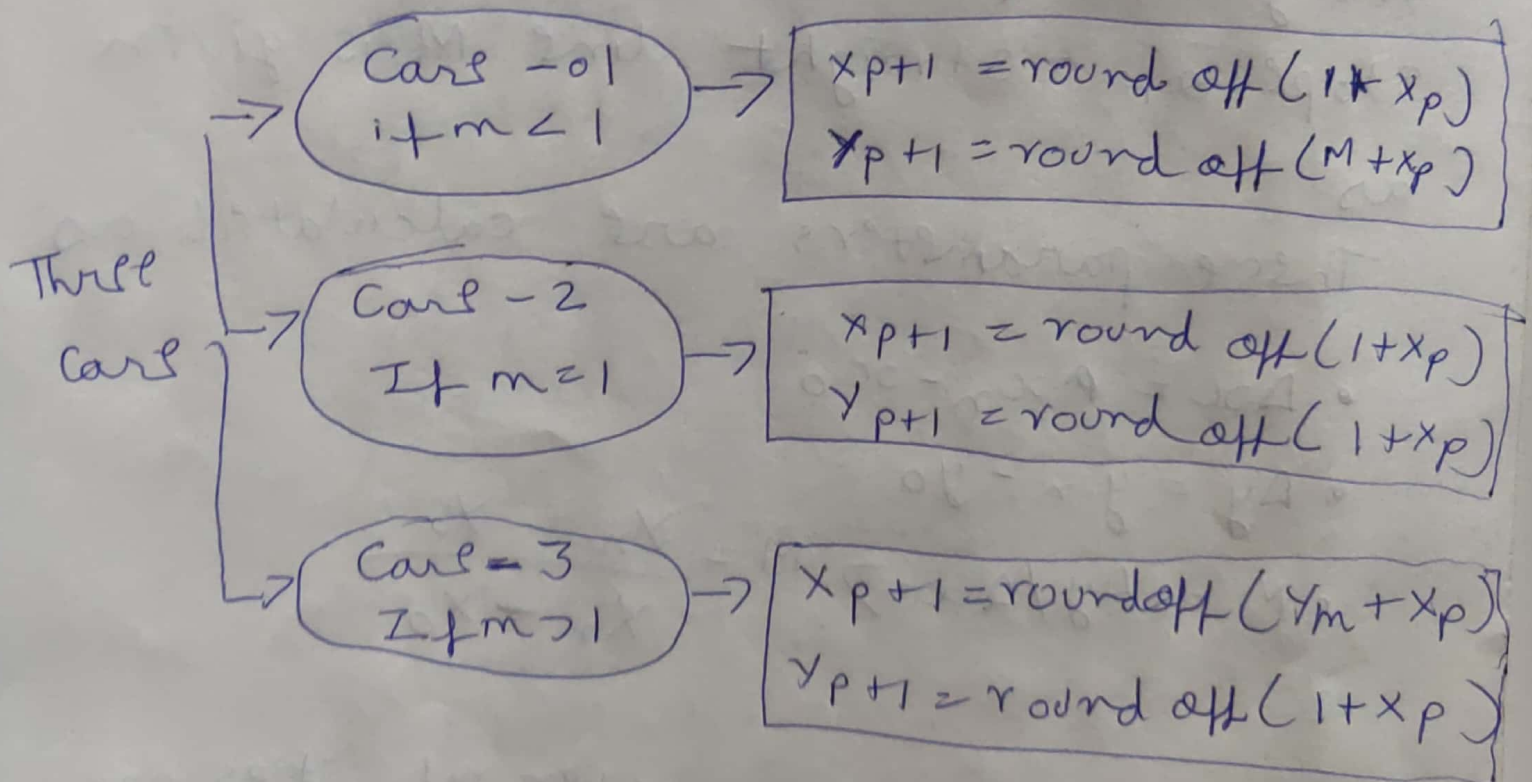 Three
Case
Case - 01
if m < 1
Xp+1 = round off (1+ Xp)
Yp+1 = round off (M + Xp)
Case - 2
If m = 1
Xp+1 = round off (1+Xp)
Yp+1 = round off (1+Xp)
Case - 3
If m > 1
Xp+1 = roundoff (Ym + Xp)
Yp+1 = round off (1+Xp)